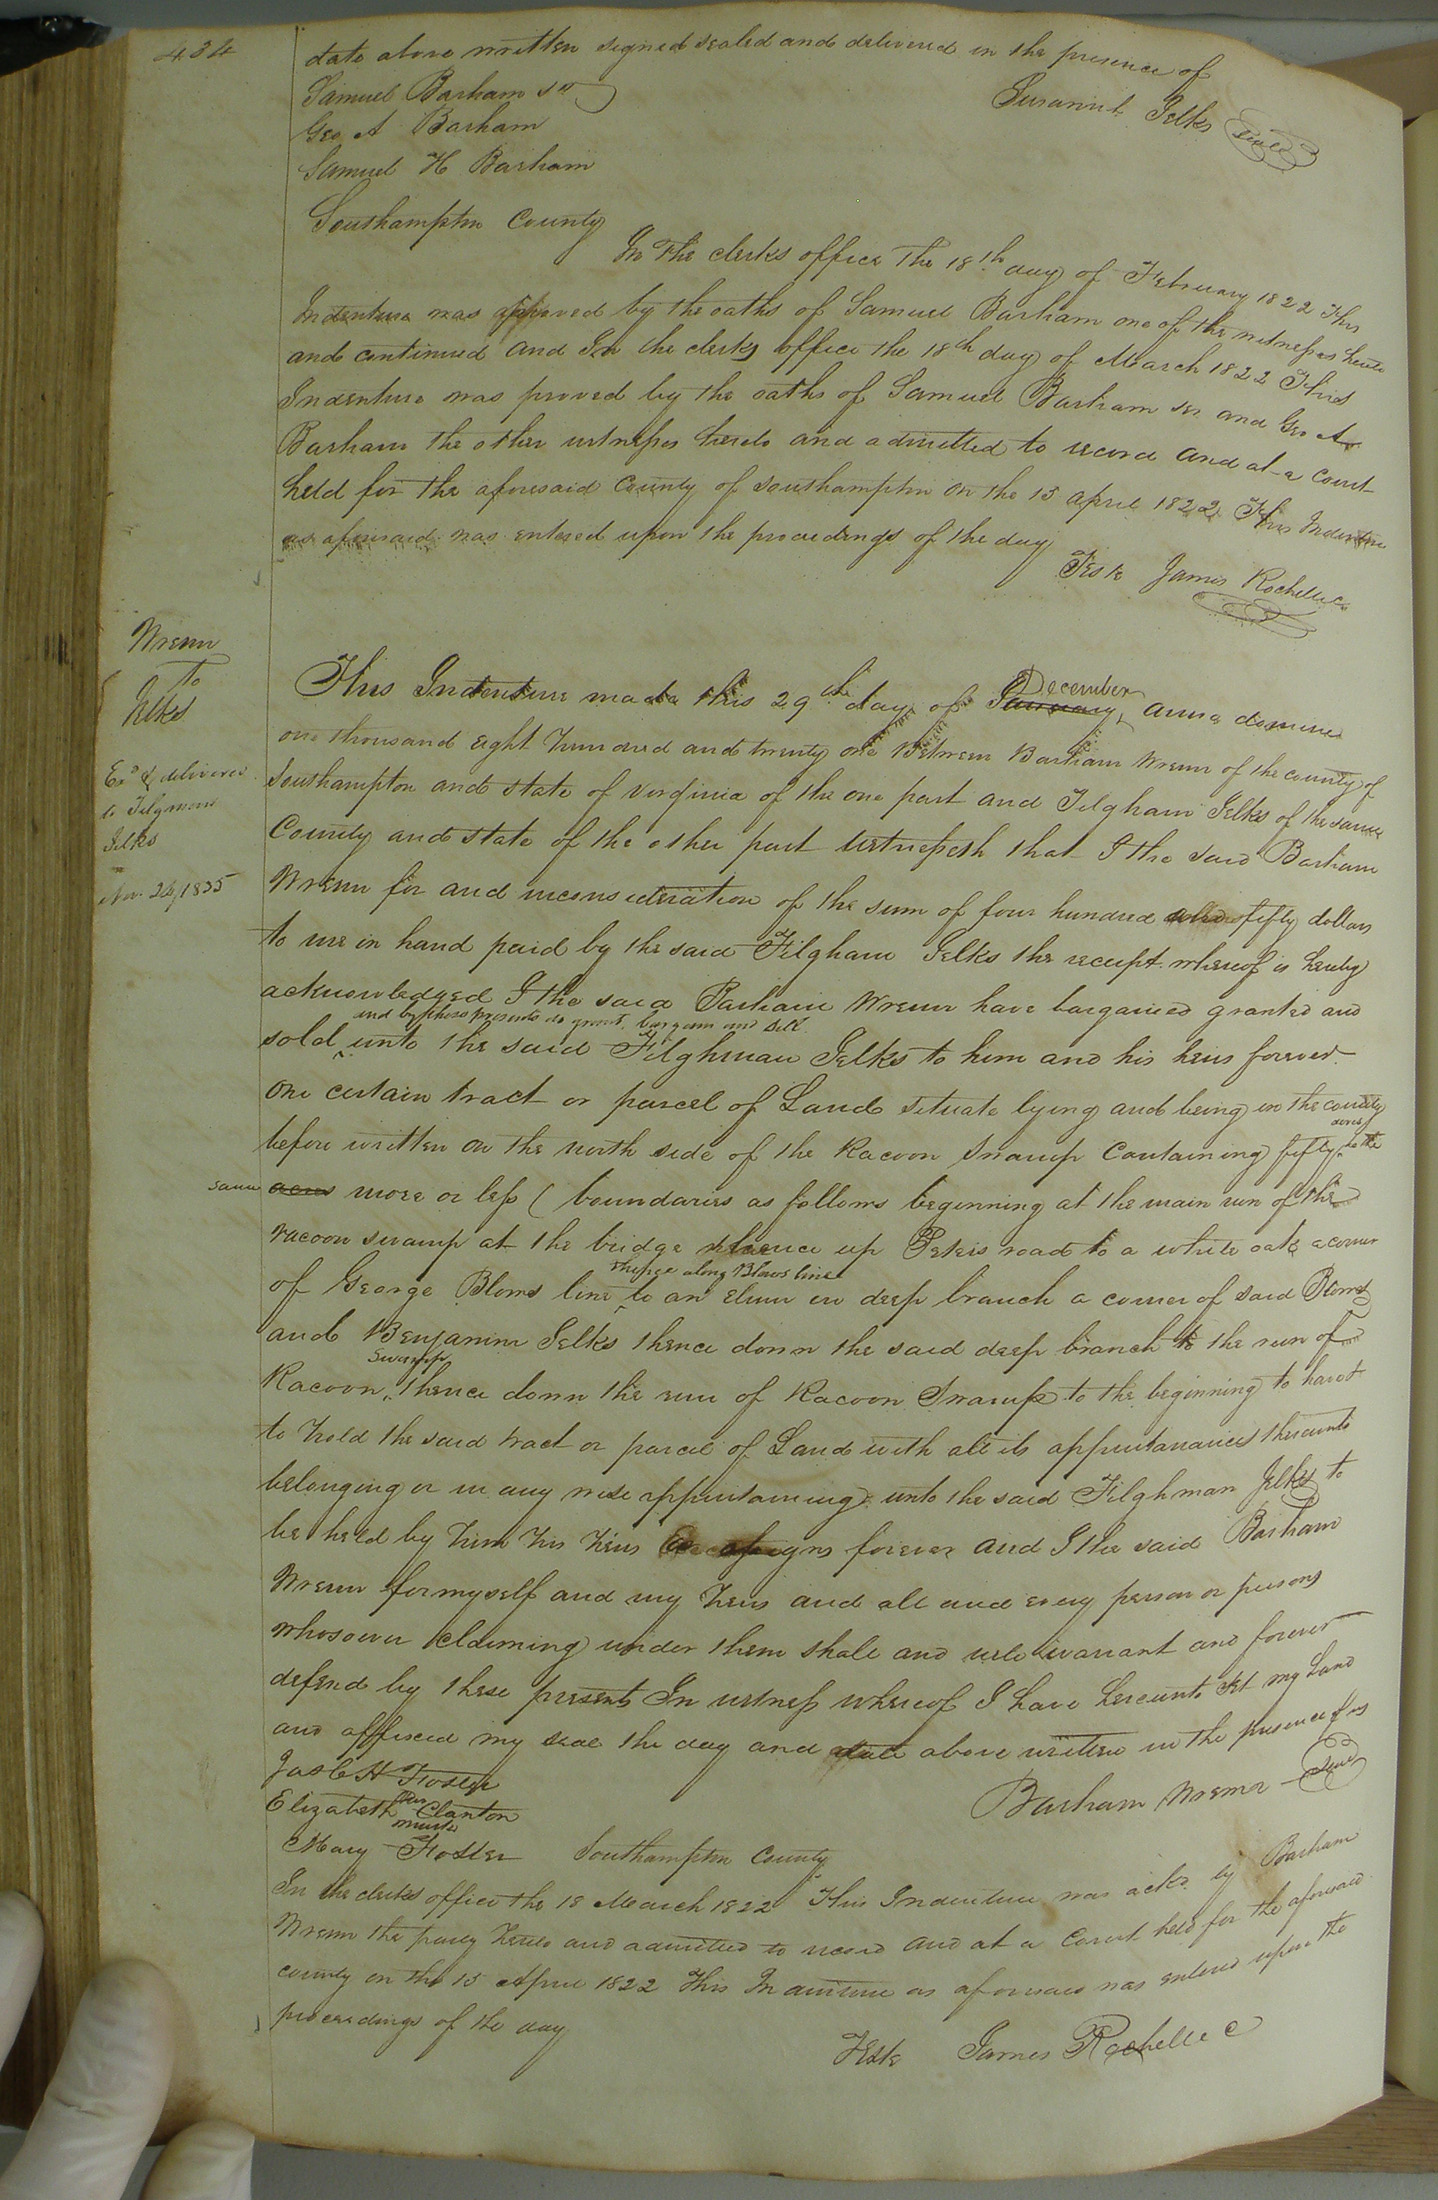 434
date above written signed sealed and delivered in the presence of
Samuel Barham sr
Susannah Jelks Seal
Geo A Barham
Samuel H Barham
Southampton County
In the clerks office the 18th day of February 1822 This
Indenture was proved by the oaths of Samuel Barham one of the witnesses hereto
and continued and In the clerks office the 18th day of March 1822 This
Indenture was proved by the oaths of Samuel Barham sr and Geo A
Barham the other witnesses hereto and admitted to record and at a court
held for the aforesaid County of Southampton on the 15 april 1822 This Indenture
as aforesaid was entered upon the proceedings of the day
Teste James Rochelle C
Wrenn
To
Jelks
Exd & delivered
to Tilgman
Jelks
Nov. 24, 1835
December
This Indenture made this 29th day of January, anno domini
one thousand eight hundred and twenty one Between Barham Wrenn of the county of
Southampton and state of Virginia of the one part and Tilgham Jelks of the same
County and state of the other part Witnesseth that I the said Barham
Wrenn for and inconsideration of the sum of four hundred fifty dollars
to me in hand paid by the said Tilgham Jelks the receipt whereof is hereby
acknowledged I the said Barham Wrenn have bargained granted and
and by these presents do grant, bargain and sell
sold unto the said Tilghman Jelks to him and his heirs forever
one certain tract or parcel of Land situate lying and being in the county
acres
before written on the north side of the Racoon Swamp Containing fifty be the
same acres more or less ( boundaries as follows beginning at the main run of the
racoon swamp at the bridge thence up road to a white oak a corner
thence along Blows line
of George Blows line to an Elum in deep branch a corner of said Blows
and Benjamin Jelks thence down the said deep branch to the run of
Swamp
Racoon, thence down the run of Racoon Swamp to the beginning to have &
to hold the said tract or parcel of Land with all its appurtanances thereunto
belonging or in any wise appurtaining unto the said Tilghman Jelks to
be held by him his heirs or assigns forever and I the said Barham
Wrenn for myself and my heirs and all and every person or persons
whosoever claiming under them shall and will warrant and forever
defend by these presents In witness whereof I have hereunto set my hand
and affixed my seal the day and date above written in the presence of us
Barham Wrenn Seal
Foster
her
Elizabeth Clanton
mark
Mary Foster Southampton County
In the clerks office the 18 March 1822 This Indenture was ackd by Barham
Wrenn the party hereto and admitted to record and at a Court held for the aforesaid
county on the 15 April 1822 This Indenture as aforesaid was entered upon the
proceedings of the day
Teste James Rochelle C